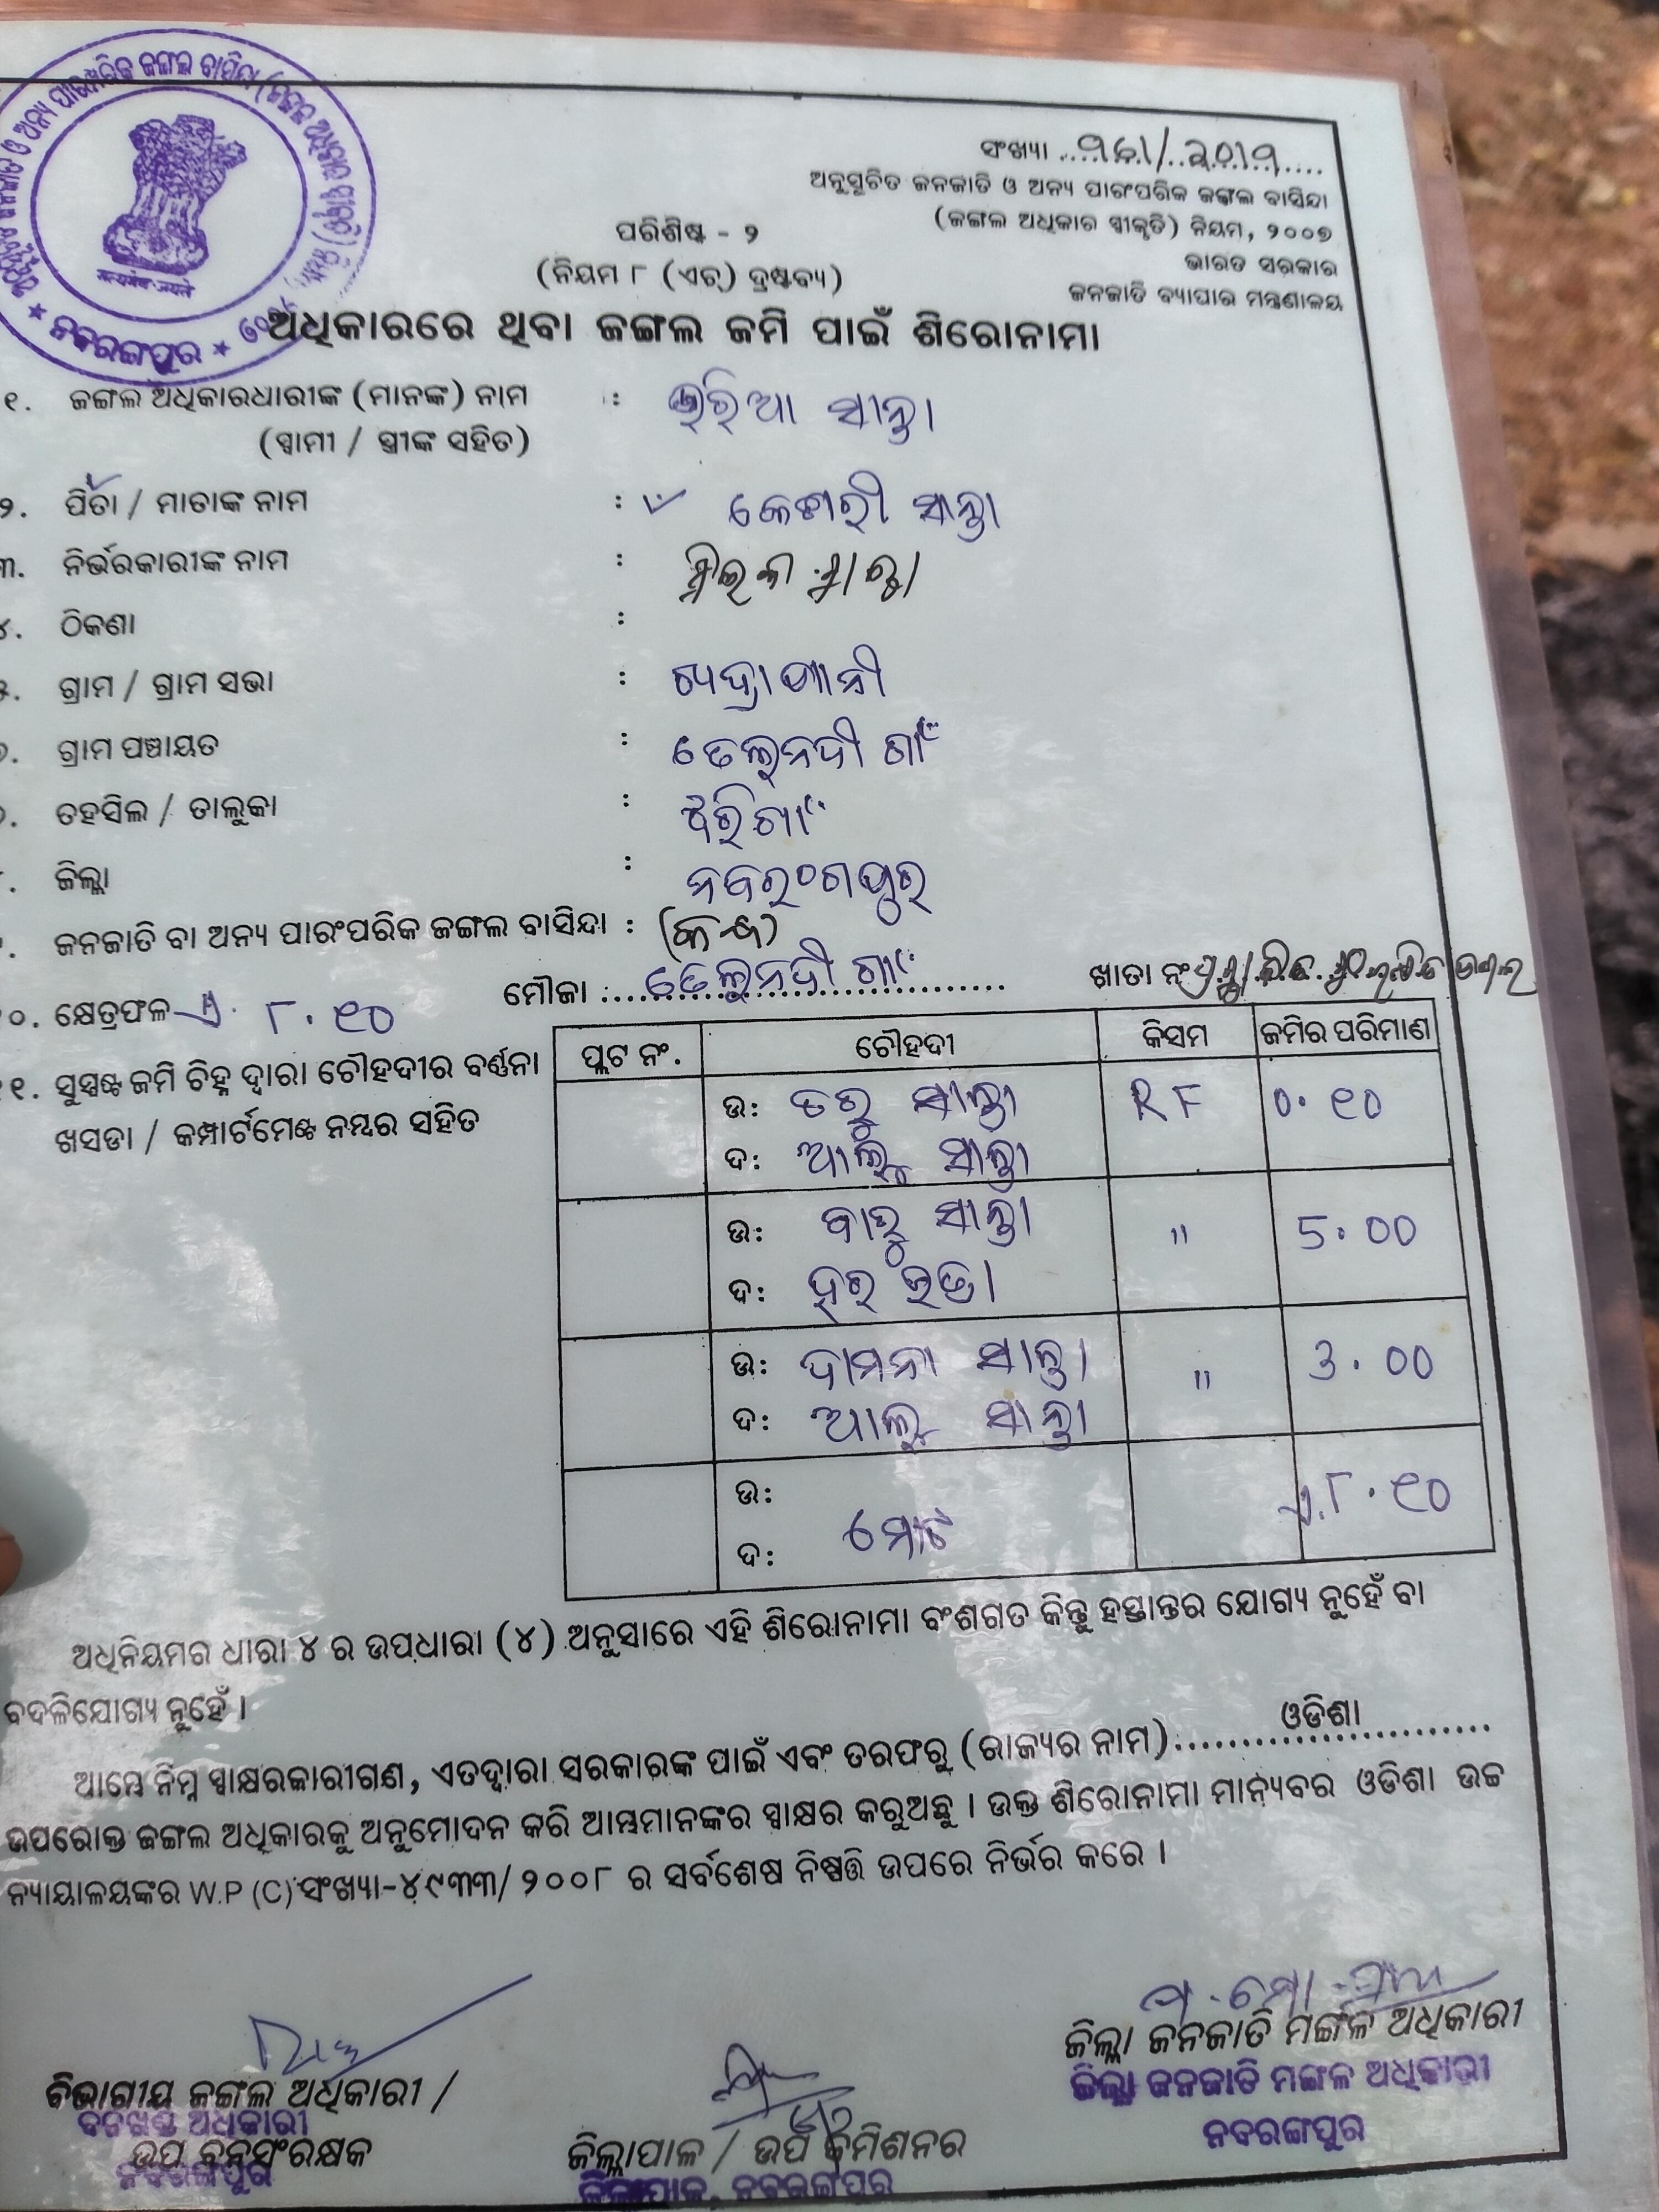 ସଂଖ୍ୟା
ଅନୁସୂଚିତ ଜନଜାତି ଓ ଅନ୍ୟ ପାରଂପରିକ ଜଙ୍ଗଲ ବାସିନ୍ଦା
(ଜଙ୍ଗଲ ଅଧିକାର ସ୍ୱୀକୃତି) ନିୟମ, ୨୦୦୭
ଭାରତ ସରକାର
ଜନଜାତି ବ୍ୟାପାର ମନ୍ତ୍ରଣାଳୟ
ପରିଶିଷ୍ଟ - ୨
(ନିୟମ ୮ (ଏଚ୍) ଦ୍ରଷ୍ଟବ୍ୟ)
ଅଧିକାରରେ ଥିବା ଜଙ୍ଗଲ ଜମି ପାଇଁ ଶିରୋନାମା
ନବରଙ୍ଗପୁର
୧. ଜଙ୍ଗଲ ଅଧିକାରଧାରୀଙ୍କ (ମାନଙ୍କ) ନାମ :
(ସ୍ୱାମୀ / ସ୍ତ୍ରୀଙ୍କ ସହିତ)
୨. ପିତା / ମାତାଙ୍କ ନାମ : କେଶରୀ ସାନ୍ତା
୩. ନିର୍ଭରକାରୀଙ୍କ ନାମ :
୪. ଠିକଣା :
୫. ଗ୍ରାମ / ଗ୍ରାମ ସଭା :
ଗ୍ରାମ ପଞ୍ଚାୟତ : ତେଲନଦୀ ଗାଁ
ତହସିଲ / ତାଲୁକା : ଝରିଗାଁ
ଜିଲ୍ଲା : ନବରଂଗପୁର
ଜନଜାତି ବା ଅନ୍ୟ ପାରଂପରିକ ଜଙ୍ଗଲ ବାସିନ୍ଦା : (କନ୍ଧ)
୧୦. କ୍ଷେତ୍ରଫଳ ଏ. ୮.୧୦ ମୌଜା : ତେଲନଦୀ ଗାଁ ଖାତା ନଂ
୧୧. ସୁସ୍ପଷ୍ଟ ଜମି ଚିହ୍ନ ଦ୍ୱାରା ଚୌହଦୀର ବର୍ଣ୍ଣନା
ଖସଡା / କମ୍ପାର୍ଟମେଣ୍ଟ ନମ୍ବର ସହିତ
ପ୍ଲଟ ନଂ. ଚୌହଦୀ କିସମ ଜମିର ପରିମାଣ
ଉ: ତରୁ ସାନ୍ତା RF ୦.୧୦
ଦ: ଆଲୁ ସାନ୍ତା
ଉ: ସାନ୍ତା " 5.00
ଦ:
ଉ: ଦାମନା ସାନ୍ତା " 3.00
ଦ: ଆଲୁ ସାନ୍ତା
ଉ: ଏ.୮.୧୦
ଦ: ମୋଟ
ଅଧିନିୟମର ଧାରା ୪ ର ଉପଧାରା (୪) ଅନୁସାରେ ଏହି ଶିରୋନାମା ବଂଶଗତ କିନ୍ତୁ ହସ୍ତାନ୍ତର ଯୋଗ୍ୟ ନୁହେଁ ବା
ବଦଳିଯୋଗ୍ୟ ନୁହେଁ ।
ଆମ୍ଭେ ନିମ୍ନ ସ୍ୱାକ୍ଷରକାରୀଗଣ, ଏତଦ୍ୱାରା ସରକାରଙ୍କ ପାଇଁ ଏବଂ ତରଫରୁ (ରାଜ୍ୟର ନାମ) ଓଡିଶା
ଉପରୋକ୍ତ ଜଙ୍ଗଲ ଅଧିକାରକୁ ଅନୁମୋଦନ କରି ଆମ୍ଭମାନଙ୍କର ସ୍ୱାକ୍ଷର କରୁଅଛୁ । ଉକ୍ତ ଶିରୋନାମା ମାନ୍ୟବର ଓଡିଶା ଉଚ୍ଚ
ନ୍ୟାୟାଳୟଙ୍କର W.P (C) ସଂଖ୍ୟା-୪୯୩୩/୨୦୦୮ ର ସର୍ବଶେଷ ନିଷ୍ପତ୍ତି ଉପରେ ନିର୍ଭର କରେ ।
ବିଭାଗୀୟ ଜଙ୍ଗଲ ଅଧିକାରୀ /
ବନଖଣ୍ଡ ଅଧିକାରୀ
ଉପ ବନସଂରକ୍ଷକ
ନବରଙ୍ଗପୁର
ଜିଲ୍ଲାପାଳ / ଉପ କମିଶନର
ଜିଲ୍ଲାପାଳ, ନବରଙ୍ଗପୁର
ଜିଲ୍ଲା ଜନଜାତି ମଙ୍ଗଳ ଅଧିକାରୀ
ଜିଲ୍ଲା ଜନଜାତି ମଙ୍ଗଳ ଅଧିକାରୀ
ନବରଙ୍ଗପୁର